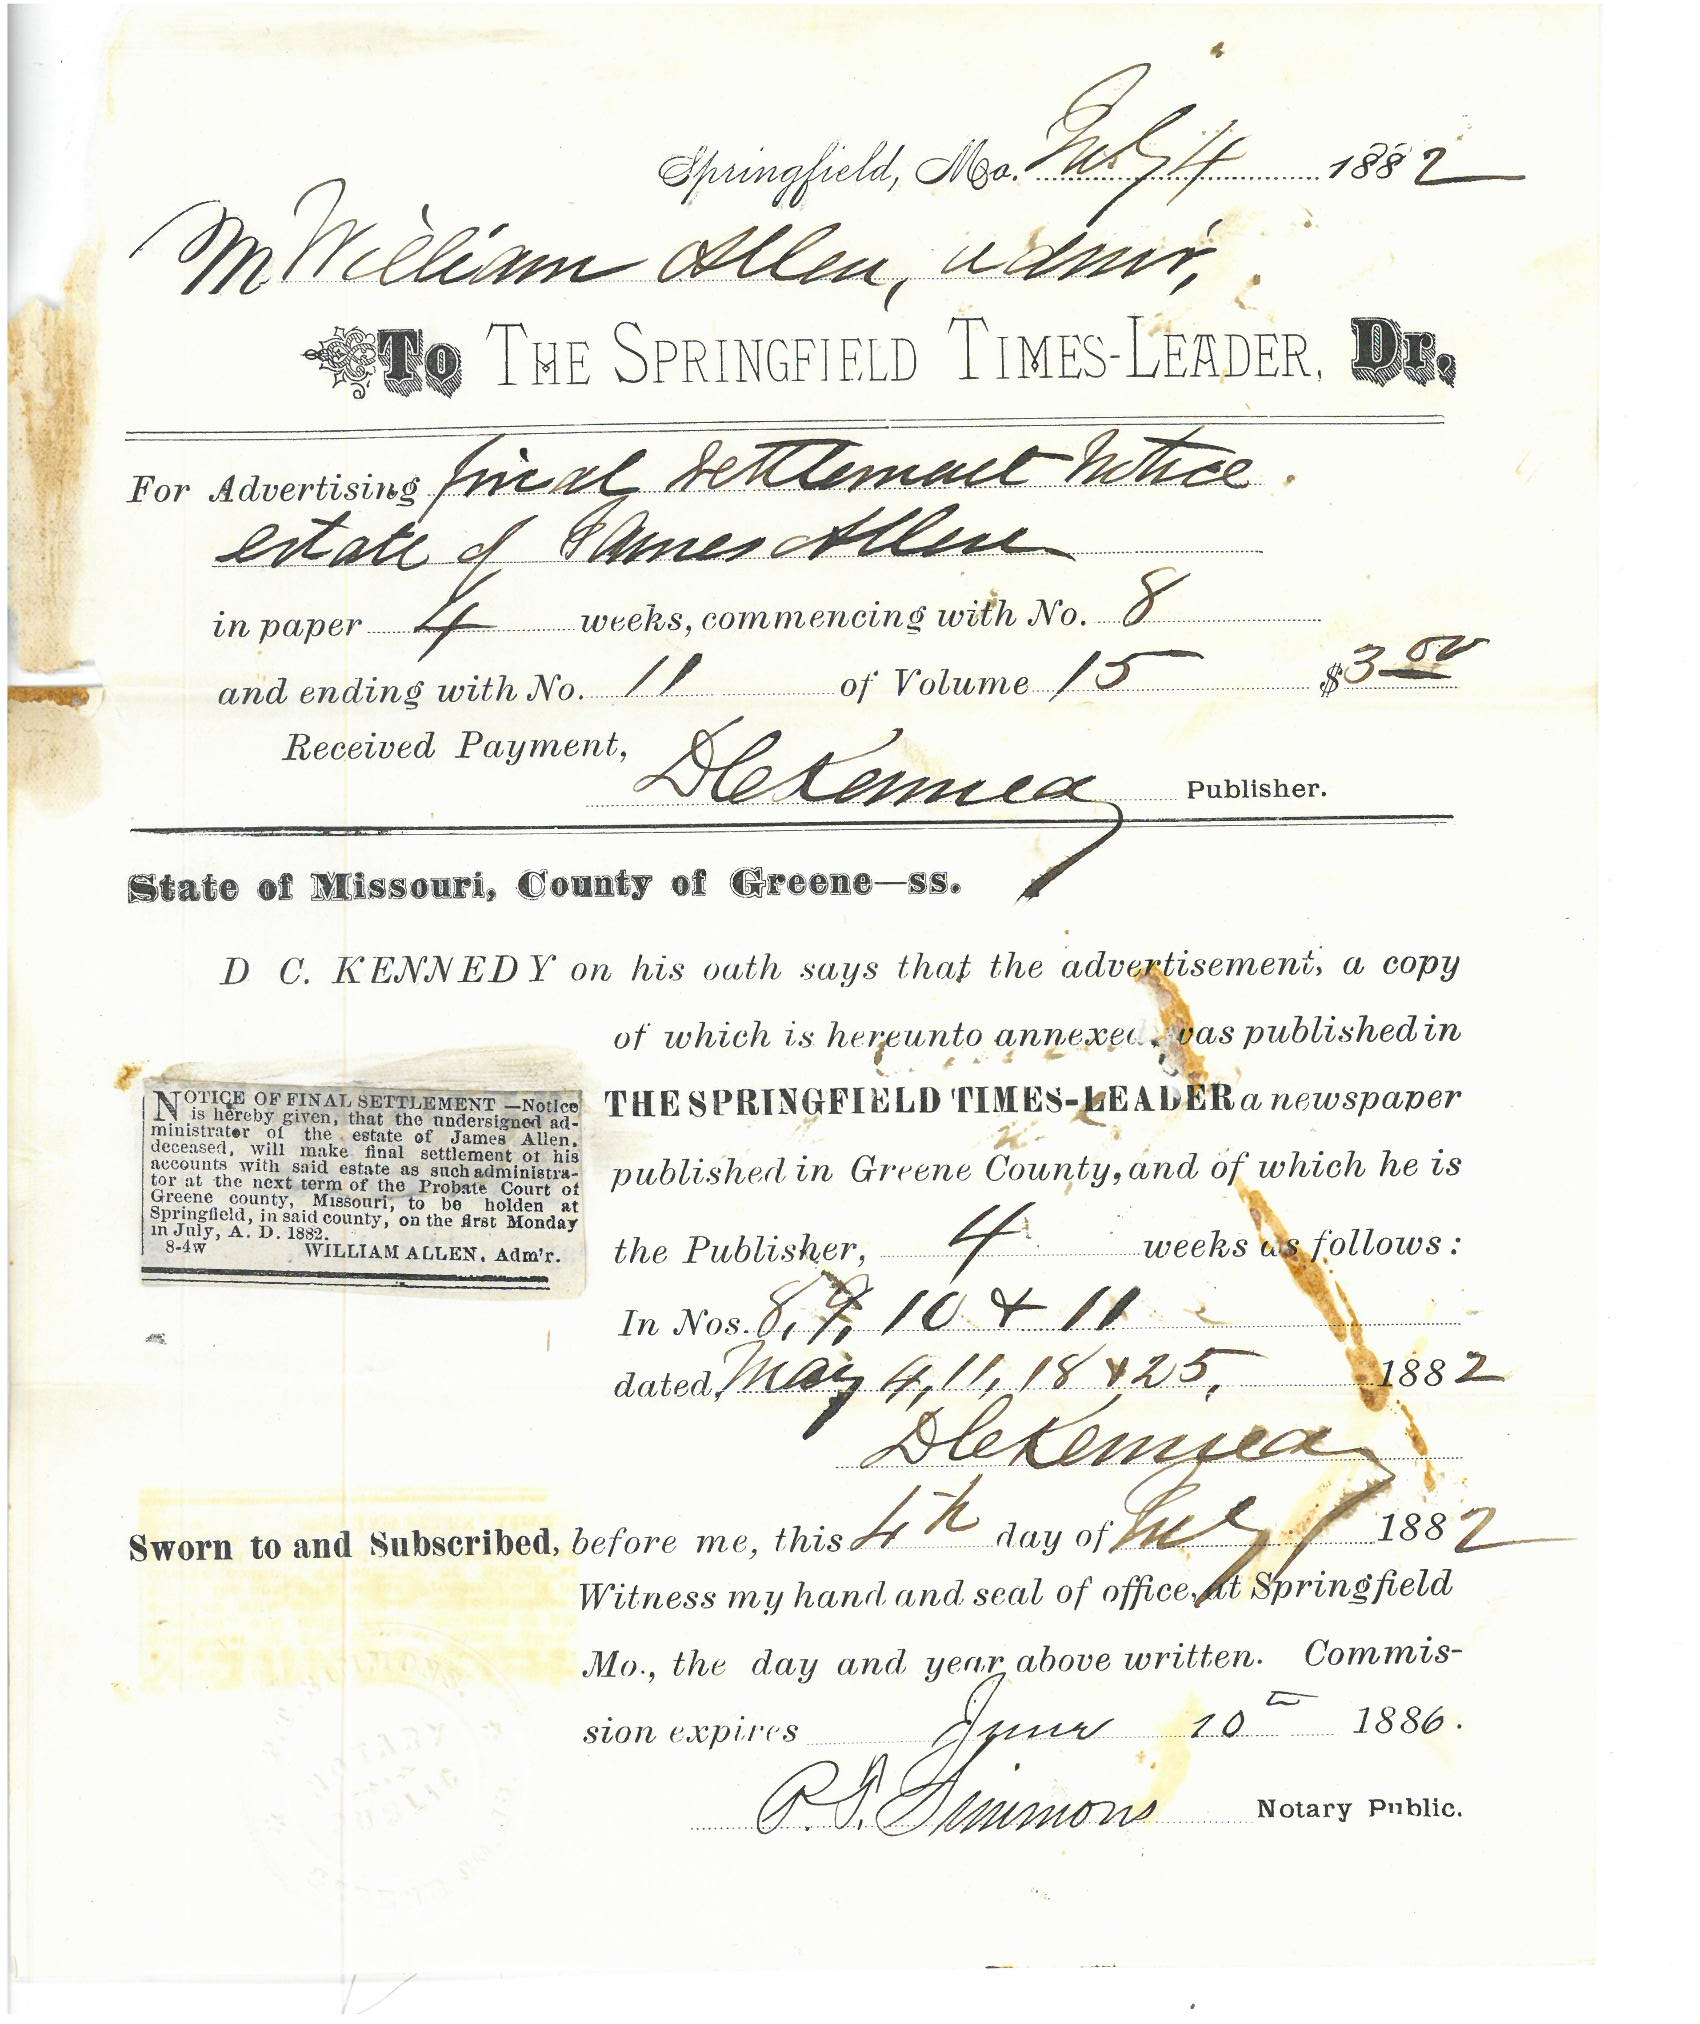 Springfield, Mo. July 4 1882
M William Allen, admr,
To THE SPRINGFIELD TIMES-LEADER, Dr.
For Advertising final settlement Notice
estate of James Allen
in paper 4 weeks, commencing with No. 8
and ending with No. 11 of Volume 15 $3 00
Received Payment,
D C Kennedy Publisher.
State of Missouri, County of Greene—ss.
D C. KENNEDY on his oath says that the advertisement, a copy
of which is hereunto annexed, was published in
THE SPRINGFIELD TIMES-LEADER a newspaper
published in Greene County, and of which he is
the Publisher, 4 weeks as follows:
In Nos. 8, 9, 10 & 11
dated, May 4, 11, 18 & 25, 1882
D C Kennedy
NOTICE OF FINAL SETTLEMENT—Notice
is hereby given, that the undersigned ad-
ministrator of the estate of James Allen,
deceased, will make final settlement of his
accounts with said estate as such administra-
tor at the next term of the Probate Court of
Greene county, Missouri, to be holden at
Springfield, in said county, on the first Monday
in July, A. D. 1882.
8-4w WILLIAM ALLEN, Adm'r.
Sworn to and Subscribed, before me, this 4th day of July 1882
Witness my hand and seal of office, at Springfield
Mo., the day and year above written. Commis-
sion expires June 10th 1886.
P. S. Simmons Notary Public.